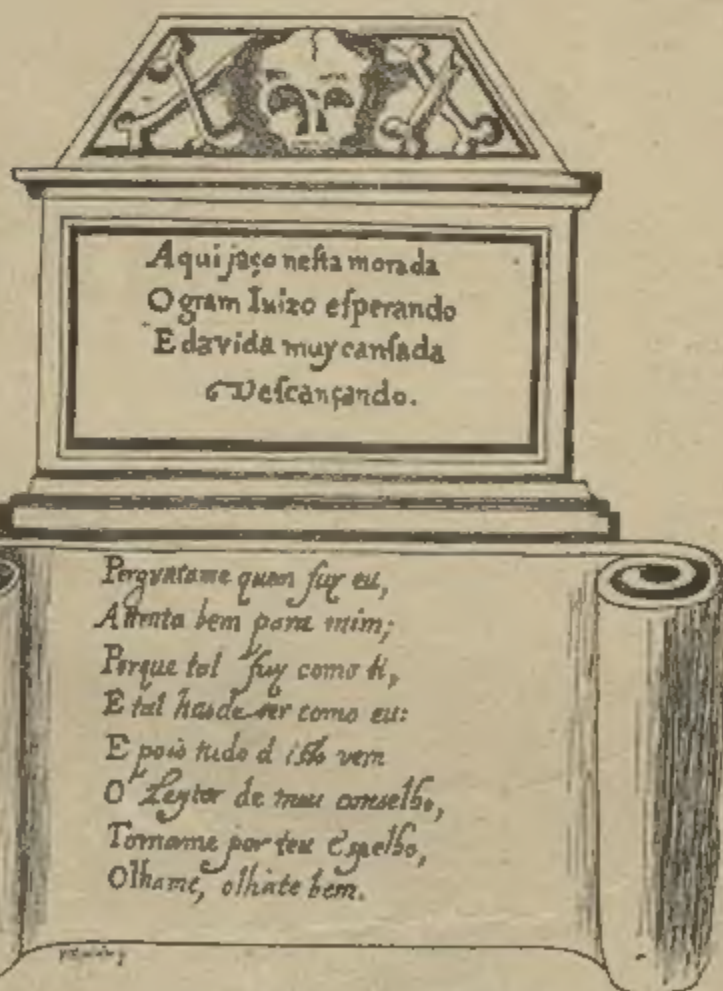 Aqui jaço nesta morada
O gram Iuizo esperando
E da vida muy cansada
Descançando.
Perguntame quem fuy eu,
Attenta bem para mim;
Porque tal fuy como ti,
E tal hasde ser como eu:
E pois tudo d isso vem
O Leytor de meu conselho,
Tomame por teu Espelho,
Olhame, olhate bem.